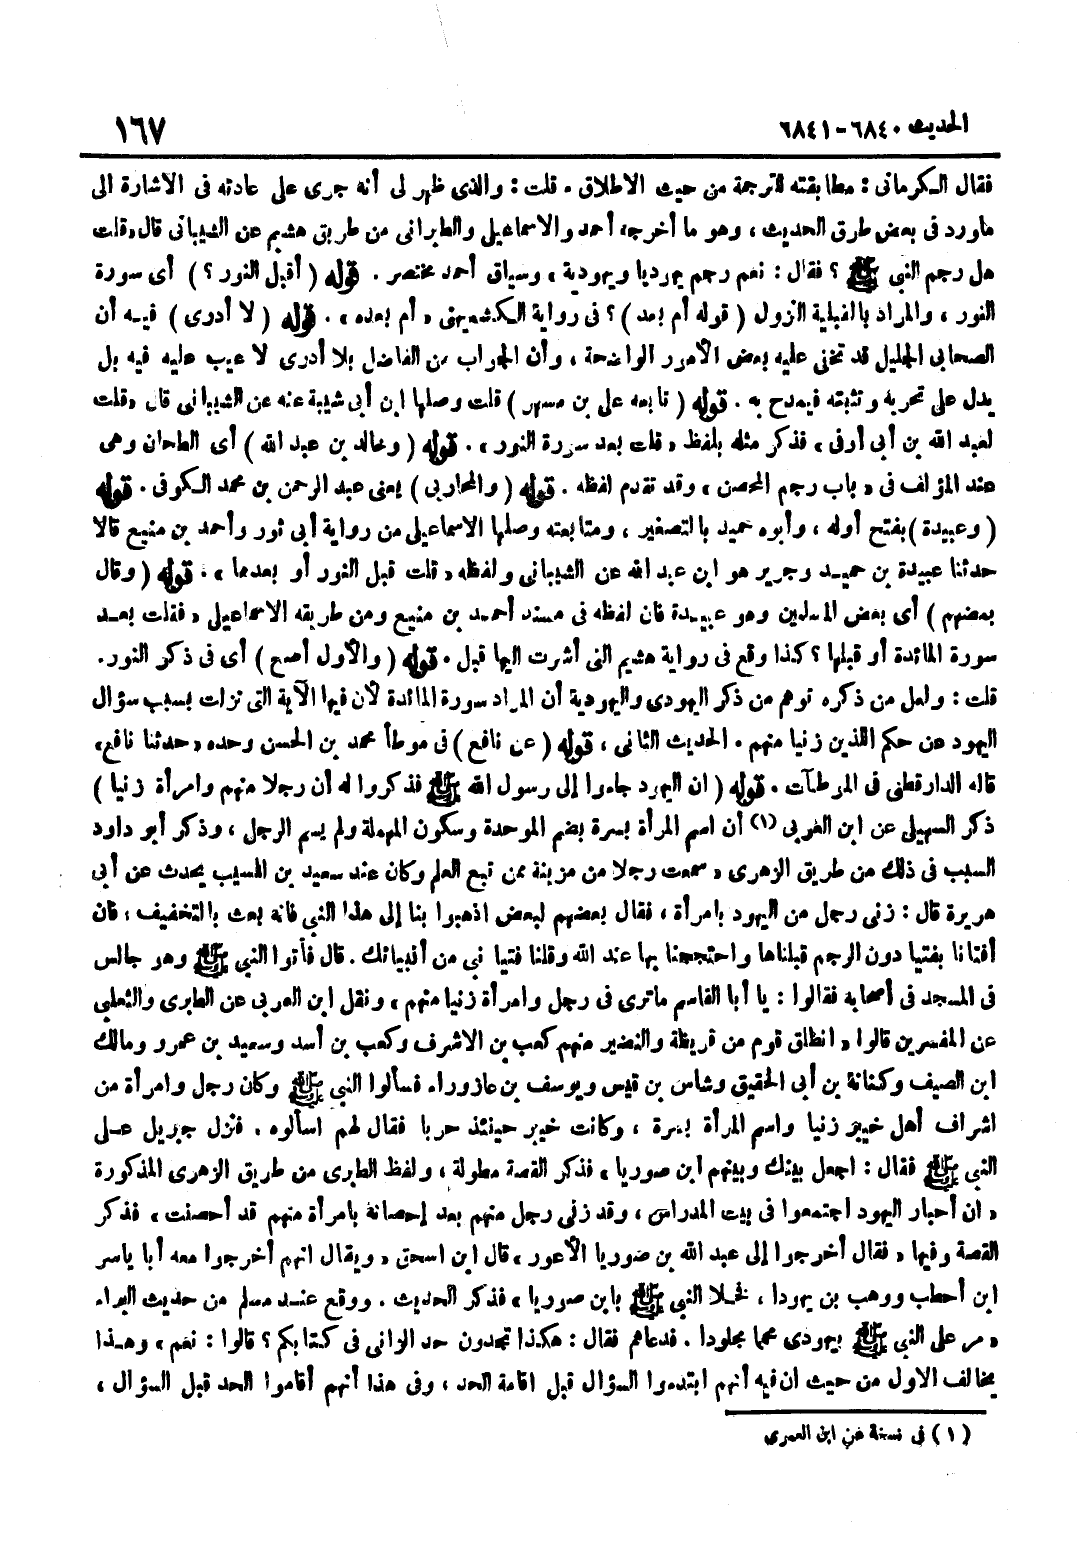 الحديث ٦٨٤٠-٦٨٤١ ١٦٧
فقال الكرمانى : مطابقته للترجمة من حيث الاطلاق . قلت : والذى ظهر لى أنه جرى على عادته فى الاشارة الى
ماورد فى بعض طرق الحديث ، وهو ما أخرجه أحمد والاسماعيلى والطبرانى من طريق هشيم عن الشيبانى قال « قلت
هل رجم النبى ﷺ ؟ فقال : نعم رجم يهوديا ويهودية » وسياق أحمد مختصر . قوله ( أقبل النور ؟ ) أى سورة
النور ، والمراد بالقبلية النزول ( قوله أم بعد ) ؟ فى رواية الكشميهنى « أم بعده » . قوله ( لا أدرى ) فيه أن
الصحابى الجليل قد تخفى عليه بعض الأمور الواضحة ، وأن الجواب من الفاضل بلا أدرى لا عيب عليه فيه بل
يدل على تحريه وتثبته فيمدح به . قوله ( تابعه على بن مسهر ) قلت وصلها ابن أبى شيبة عنه عن الشيبانى قال « قلت
لعبد الله بن أبى أوفى » فذكر مثله بلفظ « قلت بعد سورة النور » . قوله ( وخالد بن عبد الله ) أى الطحان وهى
عند المؤلف فى « باب رجم المحصن » وقد تقدم لفظه . قوله ( والمحاربى ) يعنى عبد الرحمن بن محمد الكوفى . قوله
( وعبيدة ) بفتح أوله ، وأبوه حميد بالتصغير ، ومتابعته وصلها الاسماعيلى من رواية أبى ثور وأحمد بن منيع قالا
حدثنا عبيدة بن حميد وجرير هو ابن عبد الله عن الشيبانى ولفظه « قلت قبل النور أو بعدها » . قوله ( وقال
بعضهم ) أى بعض المسلمين وهو عبيدة فان لفظه فى مسند أحمد بن منيع ومن طريقه الاسماعيلى « فقلت بعد
سورة المائدة أو قبلها ؟ كذا وقع فى رواية هشيم التى أشرت اليها قبل . قوله ( والأول أصح ) أى فى ذكر النور .
قلت : ولعل من ذكره توهم من ذكر اليهودى واليهودية أن المراد سورة المائدة لأن فيها الآية التى نزلت بسبب سؤال
اليهود عن حكم اللذين زنيا منهم . الحديث الثانى ، قوله ( عن نافع ) فى موطأ محمد بن الحسن وحده « حدثنا نافع »
قاله الدارقطنى فى الموطآت . قوله ( ان اليهود جاءوا إلى رسول الله ﷺ فذكروا له أن رجلا منهم وامرأة زنيا )
ذكر السهيلى عن ابن العربى (١) أن اسم المرأة بسرة بضم الموحدة وسكون المهملة ولم يسم الرجل ، وذكر أبو داود
السبب فى ذلك من طريق الزهرى « سمعت رجلا من مزينة ممن تبع العلم وكان عند سعيد بن المسيب يحدث عن أبى
هريرة قال : زنى رجل من اليهود بامرأة ، فقال بعضهم لبعض اذهبوا بنا إلى هذا النبى فانه بعث بالتخفيف ، فان
أفتانا بفتيا دون الرجم قبلناها واحتججنا بها عند الله وقلنا فتيا نبى من أنبيائك . قال فأتوا النبى ﷺ وهو جالس
فى المسجد فى أصحابه فقالوا : يا أبا القاسم ماترى فى رجل وامرأة زنيا منهم » ونقل ابن العربى عن الطبرى والثعلبى
عن المفسرين قالوا « انطلق قوم من قريظة والنضير منهم كعب بن الاشرف وكعب بن أسد وسعيد بن عمرو ومالك
ابن الصيف وكنانة بن أبى الحقيق وشاس بن قيس ويوسف بن عازوراء فسألوا النبى ﷺ وكان رجل وامرأة من
اشراف أهل خيبر زنيا واسم المرأة بسرة ، وكانت خيبر حينئذ حربا فقال لهم اسألوه . فنزل جبريل على
النبى ﷺ فقال : اجعل بينك وبينهم ابن صوريا » فذكر القصة مطولة ، ولفظ الطبرى من طريق الزهرى المذكورة
« ان أحبار اليهود اجتمعوا فى بيت المدراس ، وقد زنى رجل منهم بعد إحصانه بامرأة منهم قد أحصنت » فذكر
القصة وفيها « فقال أخرجوا إلى عبد الله بن صوريا الأعور » قال ابن اسحق « ويقال انهم أخرجوا معه أبا ياسر
ابن أحطب ووهب بن يهودا ، فخلا النبى ﷺ بابن صوريا » فذكر الحديث . ووقع عند مسلم من حديث البراء
« مر على النبى ﷺ يهودى محمما مجلودا . فدعاهم فقال : هكذا تجدون حد الزانى فى كتابكم ؟ قالوا : نعم » وهذا
يخالف الاول من حيث ان فيه أنهم ابتدءوا السؤال قبل اقامة الحد ، وفى هذا أنهم أقاموا الحد قبل السؤال ،
( ١ ) فى نسخة عن ابن العمرى